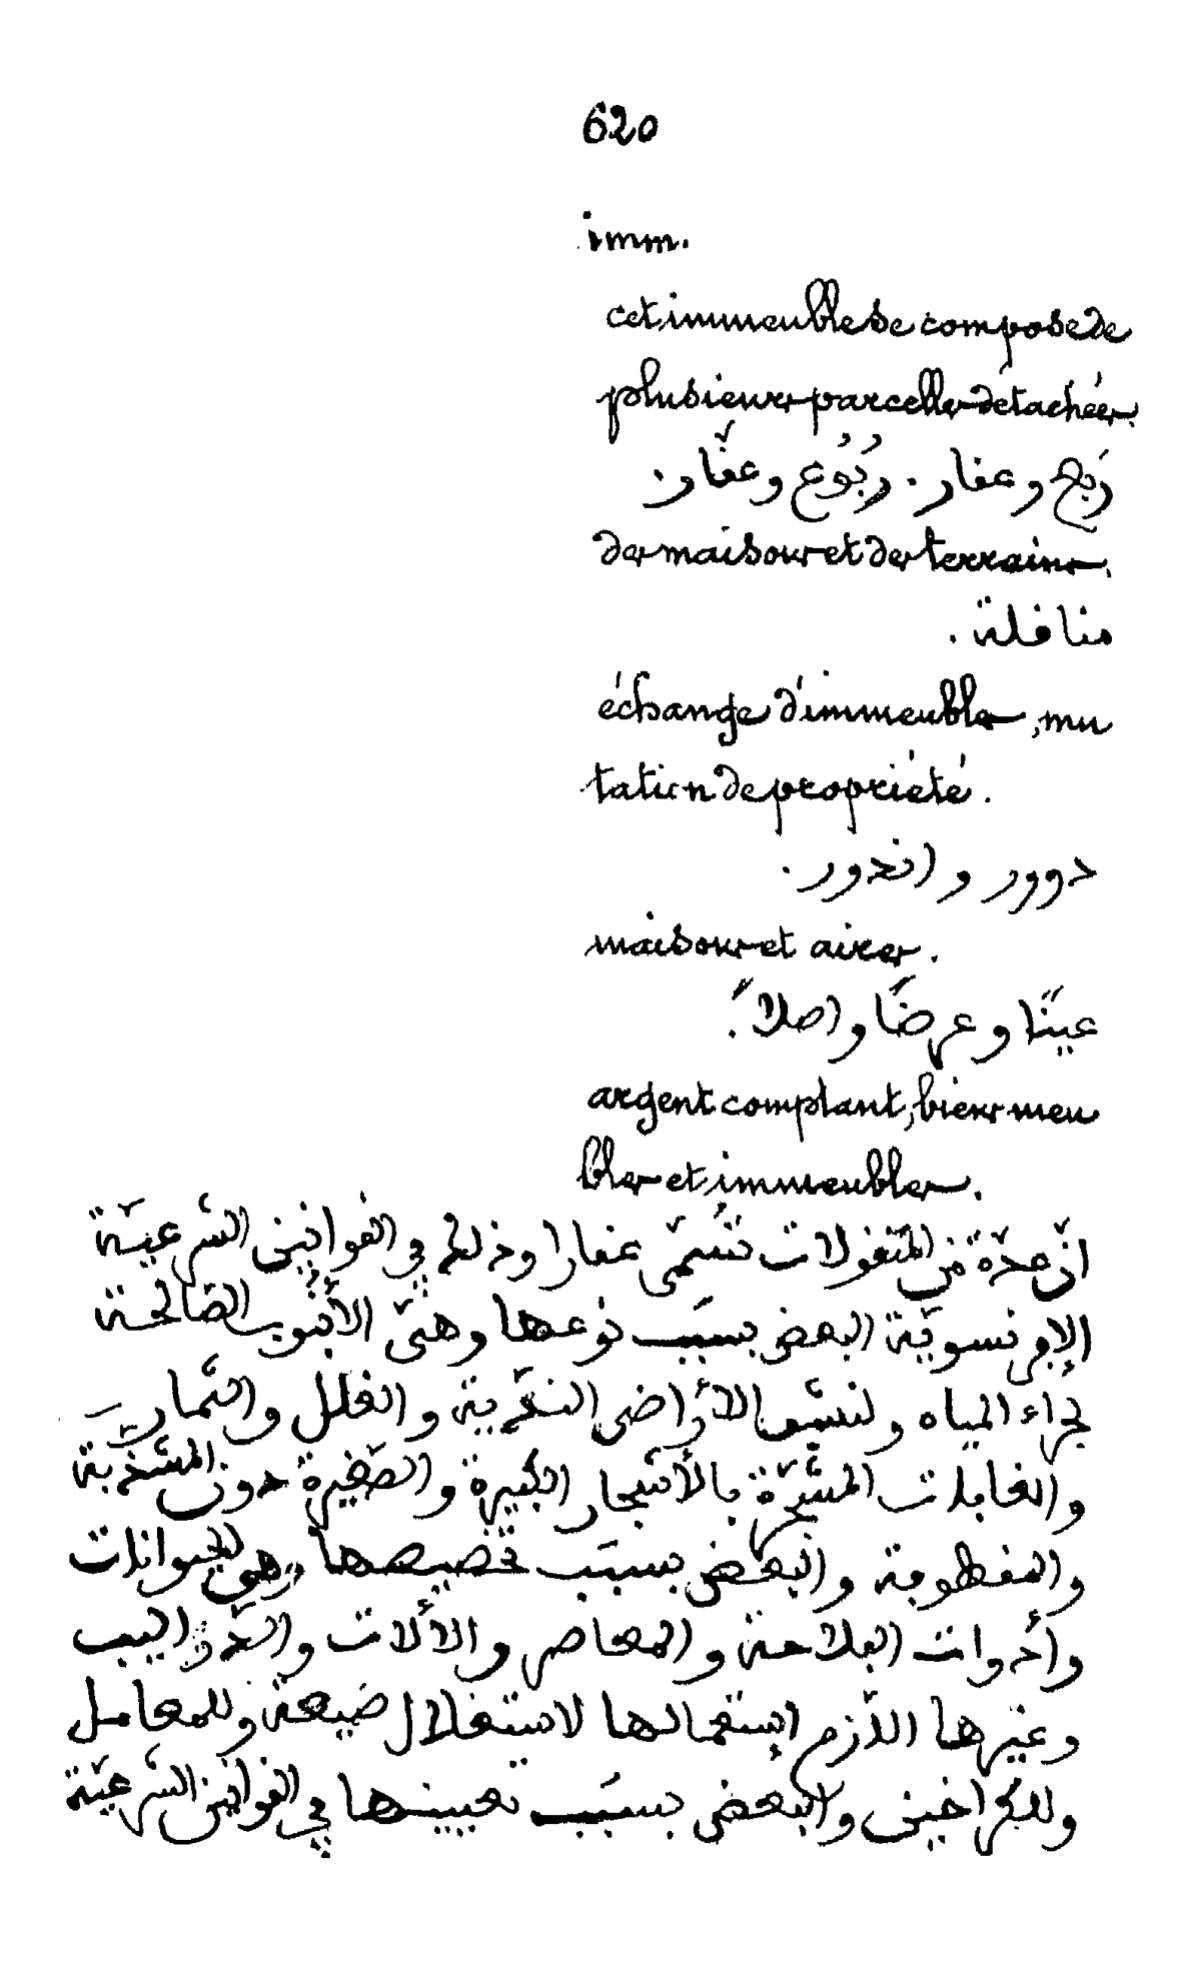 620
imm.
cet immeuble se compose de
plusieurs parcelles détachées.
رَبع وعفار. رُبُوع وعفّار.
des maisons et des terrains.
منافلة.
échange d'immeubles, mu
tation de propriété.
دوور واندور.
maisons et aires.
عينًا وعرضًا واصلاً.
argent comptant, biens meu
bles et immeubles.
انّ عدّة من المنفولات تسمّى عفارا وذلك في الفوانين الشرعيّة
الإفرنسويّة البعض بسبب نوعها وهيّ الأنبوب الصّالحة
لجراء المياه ولنشب الأراضي النديّة والغلل والثمار
والغابات المشجّرة بالأشجار الكبيرة والصّغيرة دون المشذّبة
والمفطوبة والبعض بسبب تخصيصها وهي للحيوانات
وأدوات البلاحة والمعاصر والألات والدّواليب
وغيرها اللّازم إستعمالها لاستغلال ضيعة وللمعامل
وللكراخين والبعض بسبب تعيينها في الفوانين الشرعيّة